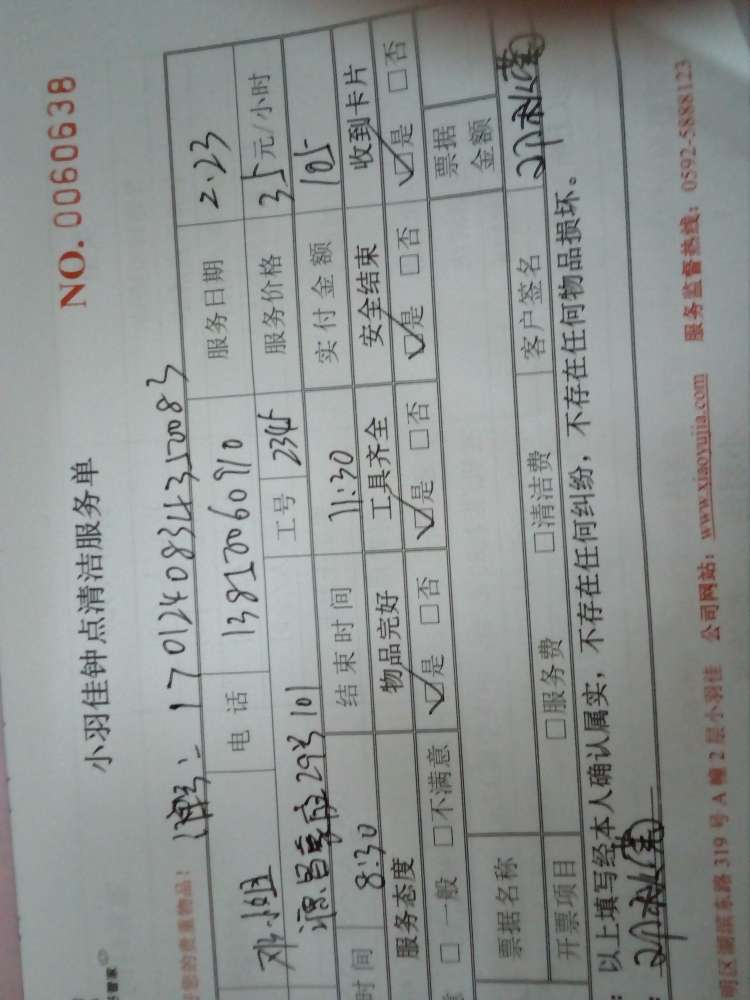 NO. 0060638
小羽佳钟点清洁服务单
好您的贵重物品！
单号：17012408344350083
邓小姐 电话 13850060910 服务日期 2.23
源昌豪庭29号101 工号 2345 服务价格 35元/小时
时间 8:30 结束时间 11:30 实付金额 105
服务态度 物品完好 工具齐全 安全结束 收到卡片
意 □一般 □不满意 ☑是 □否 ☑是 □否 ☑是 □否 ☑是 □否
票据名称 票据金额
开票项目 □服务费 □清洁费 客户签名
以上填写经本人确认属实，不存在任何纠纷，不存在任何物品损坏。
明区湖滨东路319号A幢2层小羽佳 公司网站：www.xiaoyujia.com 服务监督热线：0592-5888123